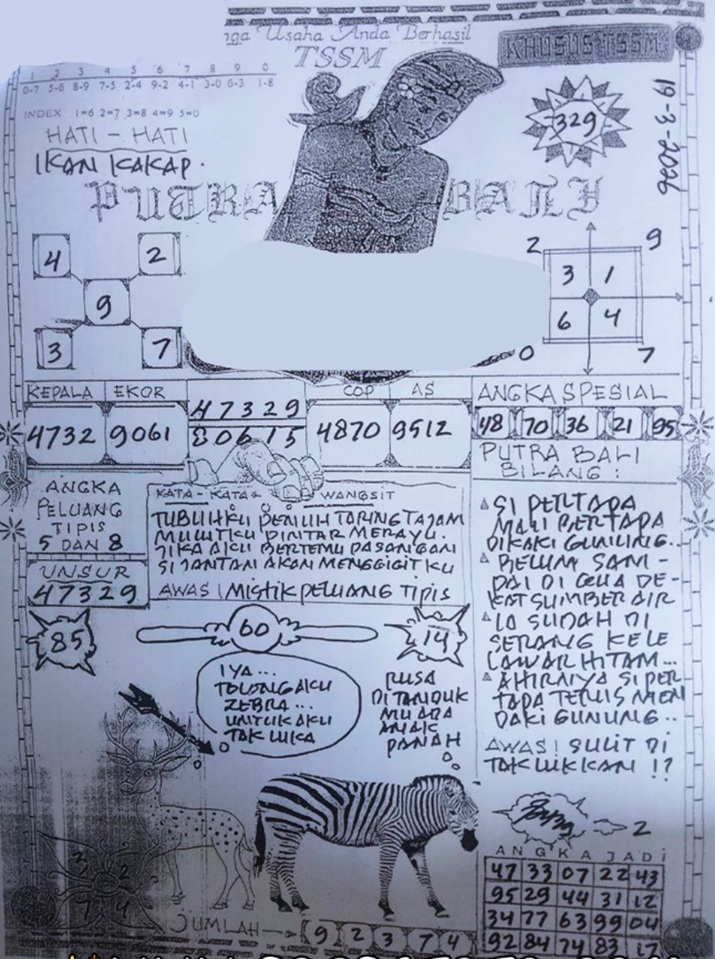 Usaha Anda Berhasil
TSSM
KHUSUS TSSM
1 2 3 4 5 6 7 8 9 0
0-7 5-6 8-9 7-5 2-4 9-2 4-1 3-0 6-3 1-8
INDEX 1=6 2=7 3=8 4=9 5=0
HATI - HATI
IKAN KAKAP.
329
19-3-2026
PUTRA BALI
4 2
9
3 7
2 9
3 1
6 4
0 7
KEPALA EKOR
4732 9061
47329
80615
COP AS
4870 9512
ANGKA SPESIAL
48 70 36 21 95
PUTRA BALI
BILANG :
SI PERTAPA
MAU BERTAPA
DIKAKI GUNUNG..
BELUM SAM-
PAI DI GUA DE-
KAT SUMBER AIR
IA SUDAH DI
SERANG KELE
LAWAR HITAM...
AHIRNYA SI PER
TAPA TERUS MEN
DAKI GUNUNG..
AWAS! SULIT DI
TAKLUKKAN !?
ANGKA
PELUANG
TIPIS
5 DAN 8
UNSUR
47329
KATA-KATA WANGSIT
TUBUHKU PENUH TARING TAJAM
MULUTKU PINTAR MERAYU.
JIKA AKU BERTEMU PASANGAN
SI JANTAN AKAN MENGGIGITKU
AWAS! MISTIK PELUANG TIPIS
85
60
14
IYA...
TOLONG AKU
ZEBRA...
UNTUK AKU
TAK LUKA
RUSA
DI TANDUK
MU ADA
ANAK
PANAH
3 2
7 4
JUMLAH → 9 2 3 7 4
2
ANGKA JADI
47 33 07 22 43
95 29 44 31 12
34 77 63 99 04
92 84 74 83 17